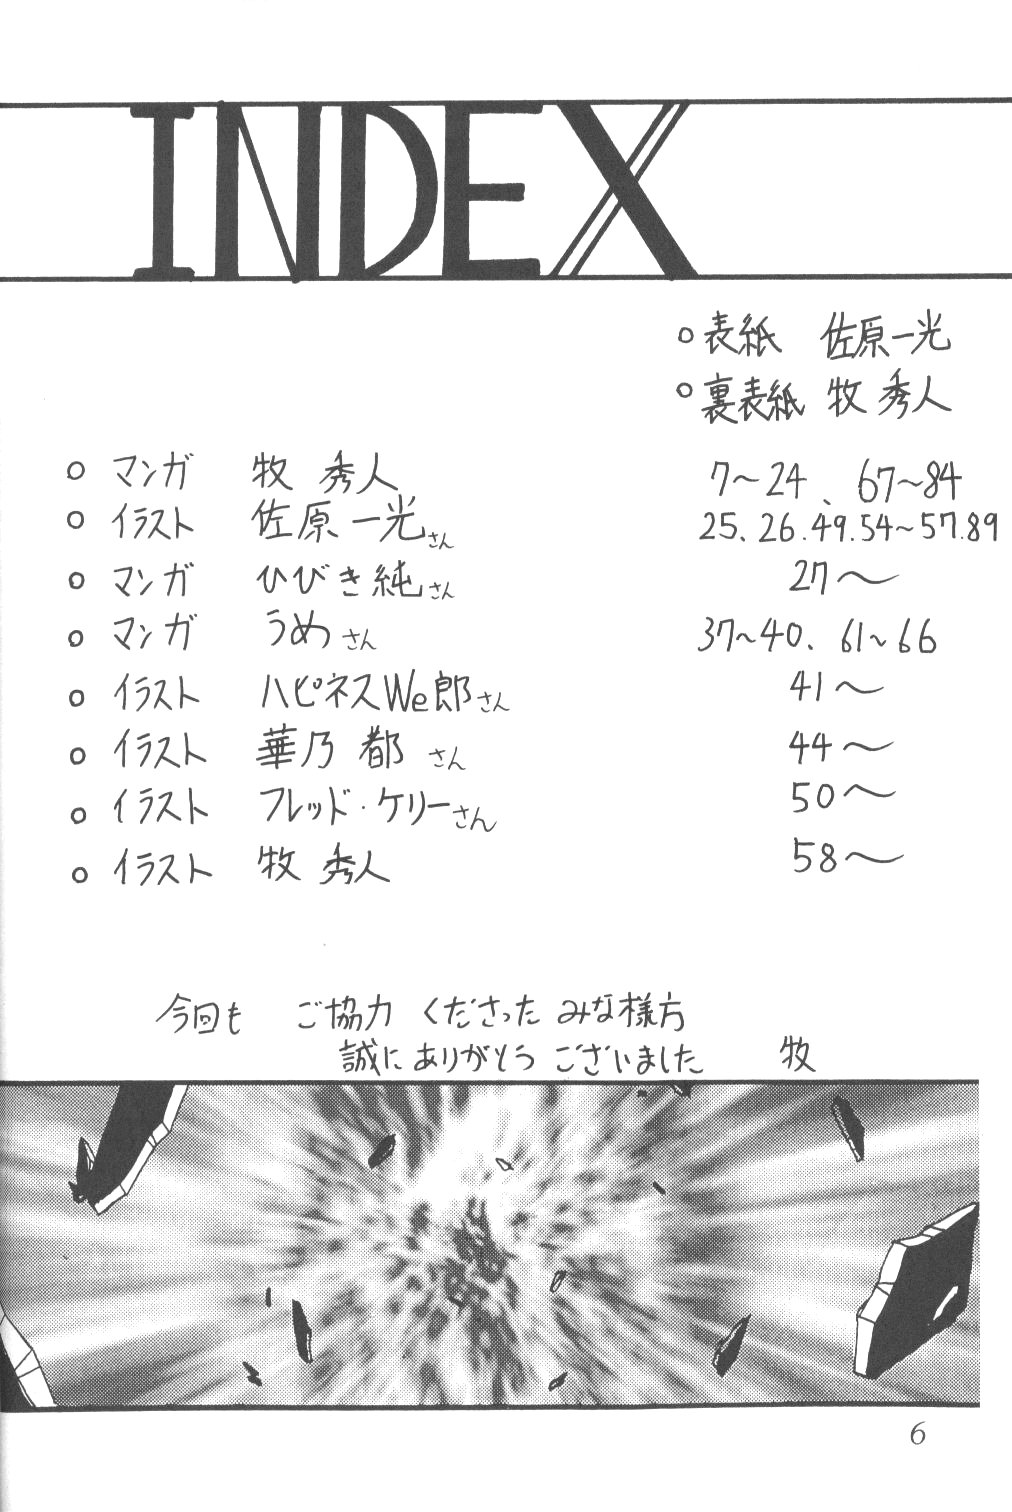 INDEX
○ 表紙 佐原一光
○ 裏表紙 牧 秀人
○ マンガ 牧 秀人 7〜24、67〜84
○ イラスト 佐原一光さん 25.26.49.54〜57.89
○ マンガ ひびき純さん 27〜
○ マンガ うめさん 37〜40、61〜66
○ イラスト ハピネスWe郎さん 41〜
○ イラスト 華乃 都さん 44〜
○ イラスト フレッド・ケリーさん 50〜
○ イラスト 牧 秀人 58〜
今回も ご協力 くださった みな様方
誠に ありがとう ございました 牧
6